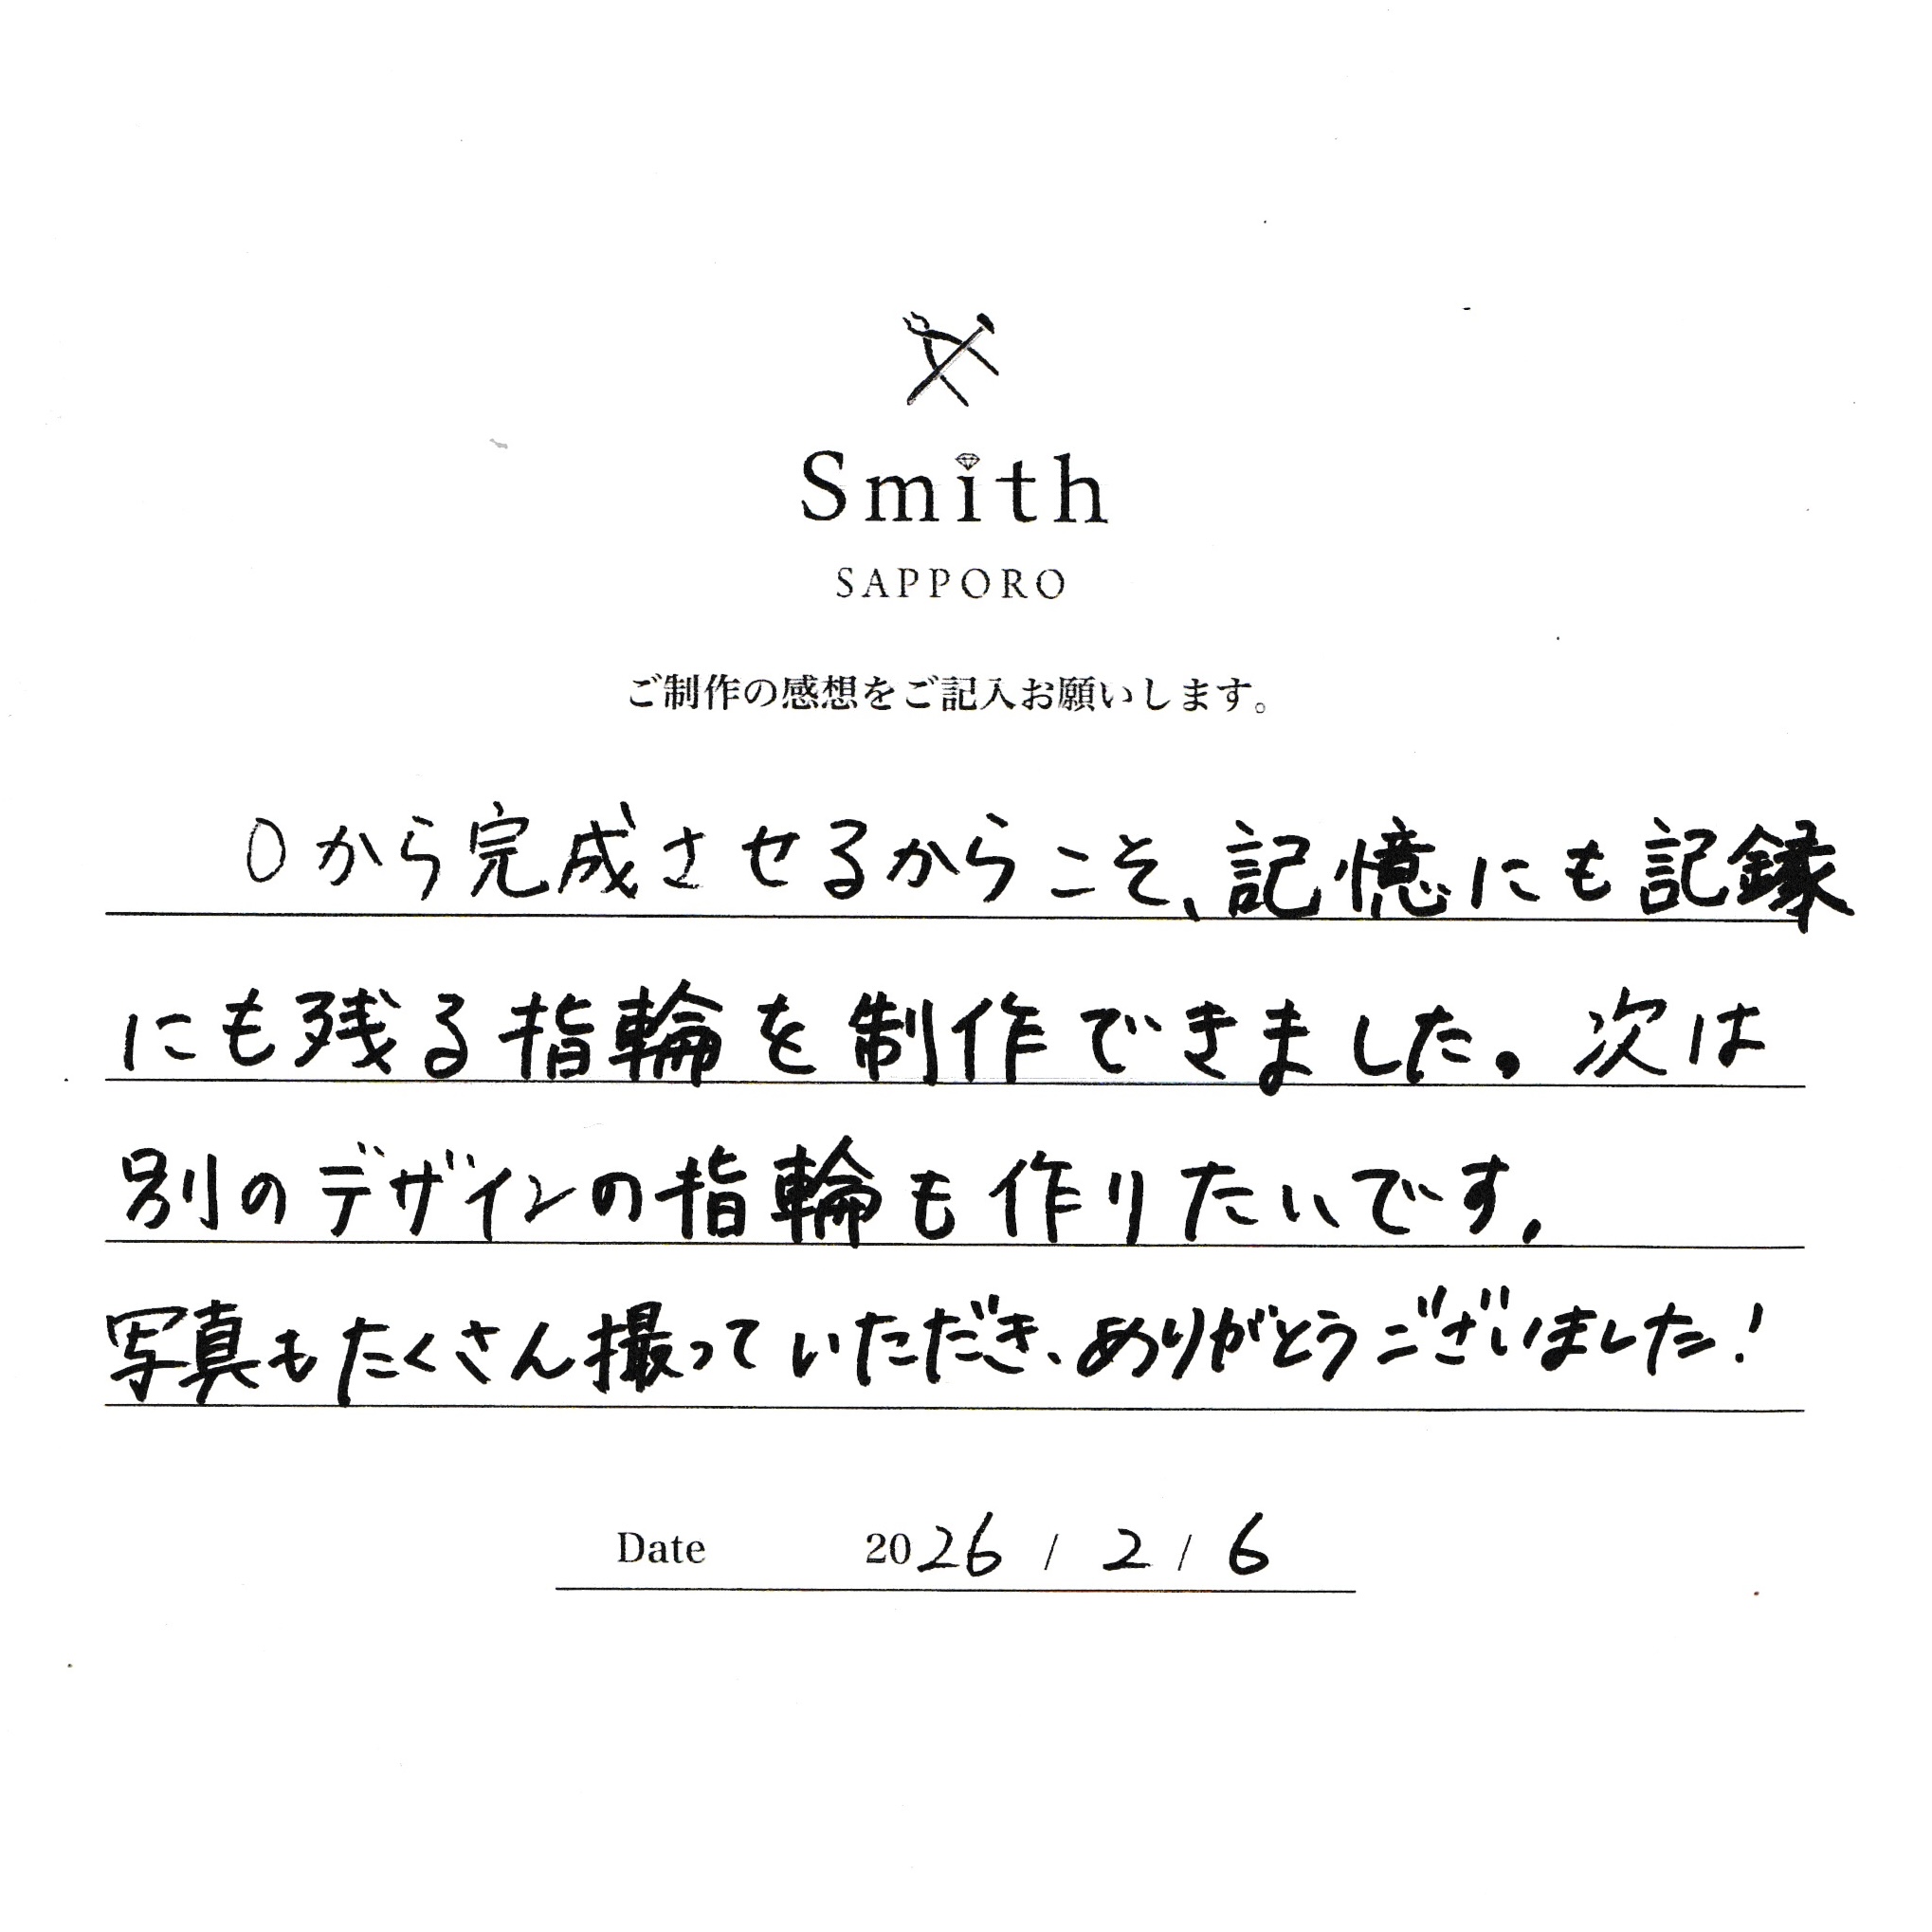 Smith
SAPPORO
ご制作の感想をご記入お願いします。
0から完成させるからこそ、記憶にも記録
にも残る指輪を制作できました。次は
別のデザインの指輪も作りたいです。
写真もたくさん撮っていただき、ありがとうございました!
Date 2026 / 2 / 6